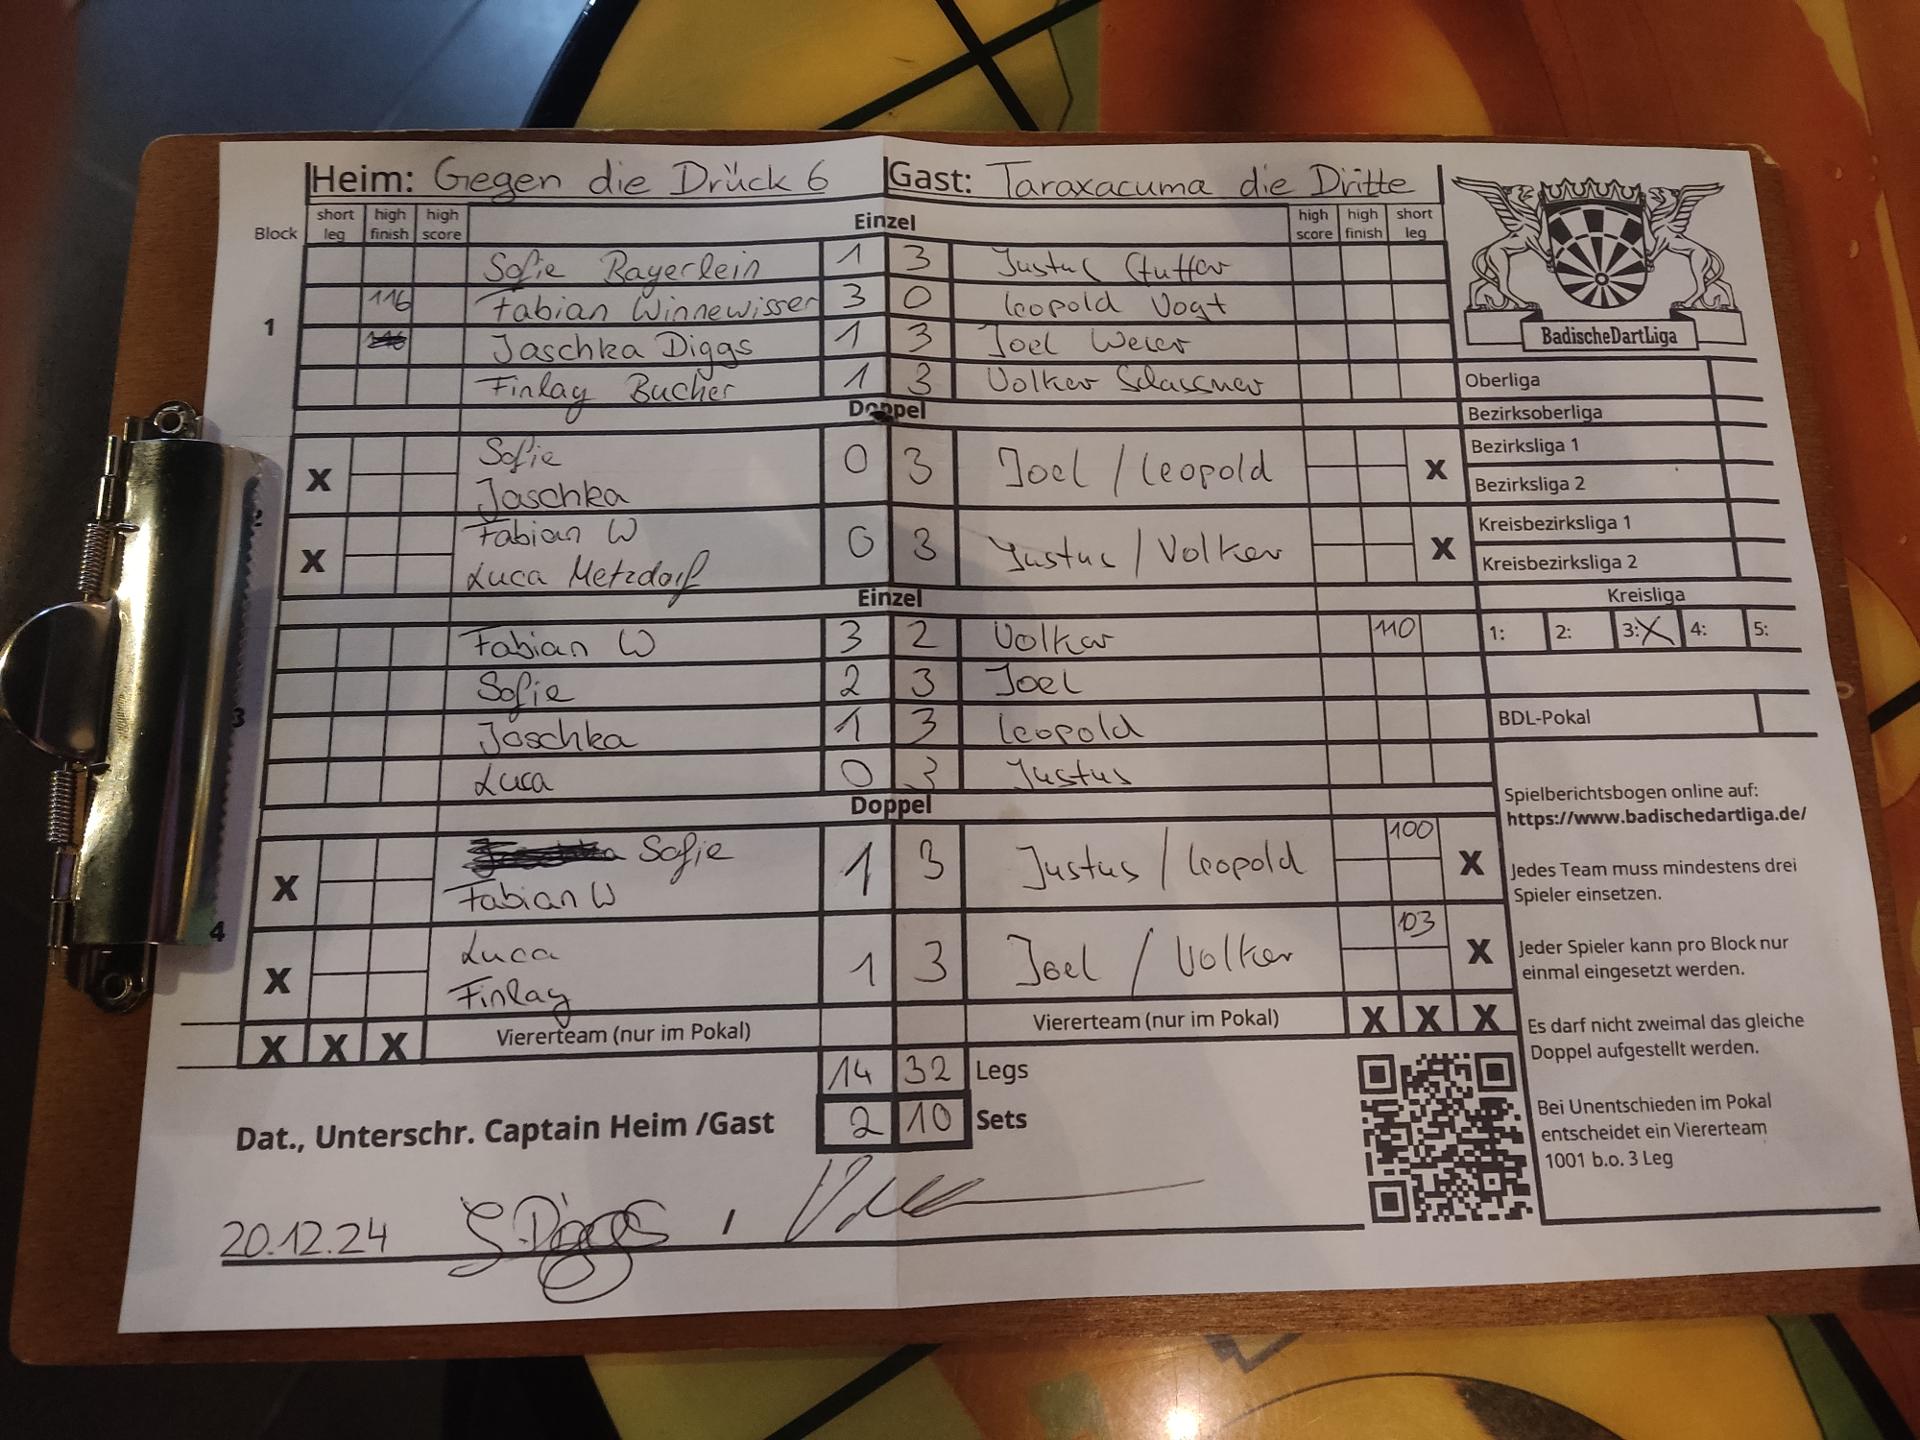 Heim: Gegen die Drück 6 Gast: Taraxacuma die Dritte
Block short leg high finish high score Einzel high score high finish short leg
Sofie Bayerlein 1 3 Justus
1 116 Fabian Winnewisser 3 0 Leopold Vogt
Jaschka Diggs 1 3 Joel
Finlay Bucher 1 3 Volker
Doppel
X Sofie 0 3 Joel / Leopold X
Jaschka
X Fabian W 0 3 Justus / Volker X
Luca Metzdorf
Einzel
Fabian W 3 2 Volker 110
Sofie 2 3 Joel
3 Jaschka 1 3 Leopold
Luca 0 3 Justus
Doppel
X Sofie 1 3 Justus / Leopold 100 X
Fabian W
4 X Luca 1 3 Joel / Volker 103 X
Finlay
X X X Viererteam (nur im Pokal) Viererteam (nur im Pokal) X X X
14 32 Legs
Dat., Unterschr. Captain Heim /Gast 2 10 Sets
20.12.24 J. Diggs /
BadischeDartLiga
Oberliga
Bezirksoberliga
Bezirksliga 1
Bezirksliga 2
Kreisbezirksliga 1
Kreisbezirksliga 2
Kreisliga
1: 2: 3: X 4: 5:
BDL-Pokal
Spielberichtsbogen online auf:
https://www.badischedartliga.de/
Jedes Team muss mindestens drei
Spieler einsetzen.
Jeder Spieler kann pro Block nur
einmal eingesetzt werden.
Es darf nicht zweimal das gleiche
Doppel aufgestellt werden.
Bei Unentschieden im Pokal
entscheidet ein Viererteam
1001 b.o. 3 Leg